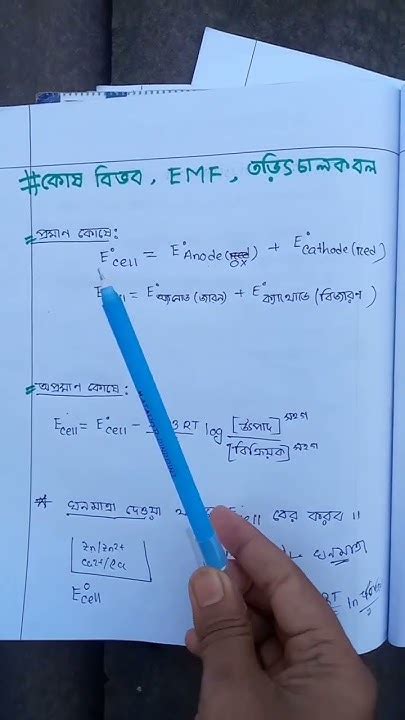 #কোষ বিভব, EMF, তড়িৎচালকবল
প্রমাণ কোষে:
E°cell = E°Anode(ox) + E°Cathode(red)
= E°অ্যানোড (জারণ) + E°ক্যাথোড (বিজারণ)
অপ্রমাণ কোষে:
Ecell = E°cell - 3 RT log [উৎপাদ]সহগ / [বিক্রিয়ক]সহগ
* ঘনমাত্রা দেওয়া cell বের করব ।।
Zn/Zn2+ ঘনমাত্রা
E°cell RT ln